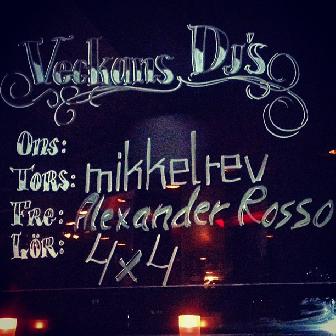 Veckans Dj's
Ons:
Tors: mikkelrev
Fre: Alexander Rosso
Lör: 4x4